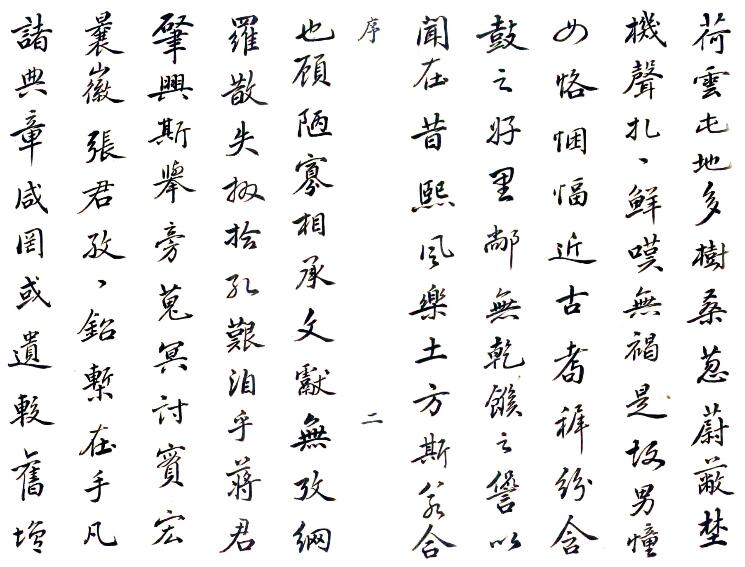 荷雲屯地多樹桑蔥蔚蔽埜
機聲扎、鮮嘆無褐是故男憧
女恪悃愊近古耆穉紛含
鼓之好里鄰無乾餱之諐以
聞在昔熙風樂土方斯合
序 二
也顧陋寡相承文獻無攷綱
羅散失掇拾孔艱洎乎蔣君
肇興斯舉旁蒐冥討賓宏
曩徽張君孜、鉛槧在手凡
諸典章咸罔或遺較舊增